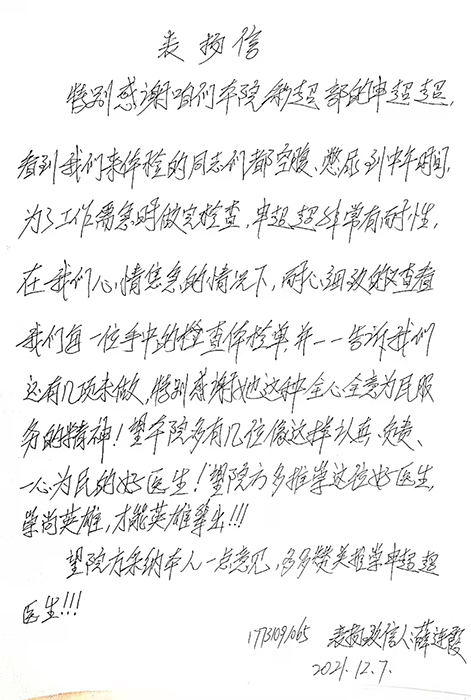 表扬信
特别感谢咱们本院彩超部的申超超,
看到我们来体检的同志们都空腹、憋尿到中午时间,
为了工作需急时做完检查,申超超非常有耐性,
在我们心情焦急的情况下,耐心细致的又查看
我们每一位手中的检查体检单,并一一告诉我们
还有几项未做,特别感谢她这种全心全意为民服
务的精神!望本院多有几位像这样认真、负责、
一心为民的好医生!望院方多推崇这位好医生,
崇尚英雄,才能英雄辈出!!!
望院方采纳本人一点意见,多多赞美推崇申超超
医生!!!
17731091065 表扬致信人:薛连霞
2021.12.7.